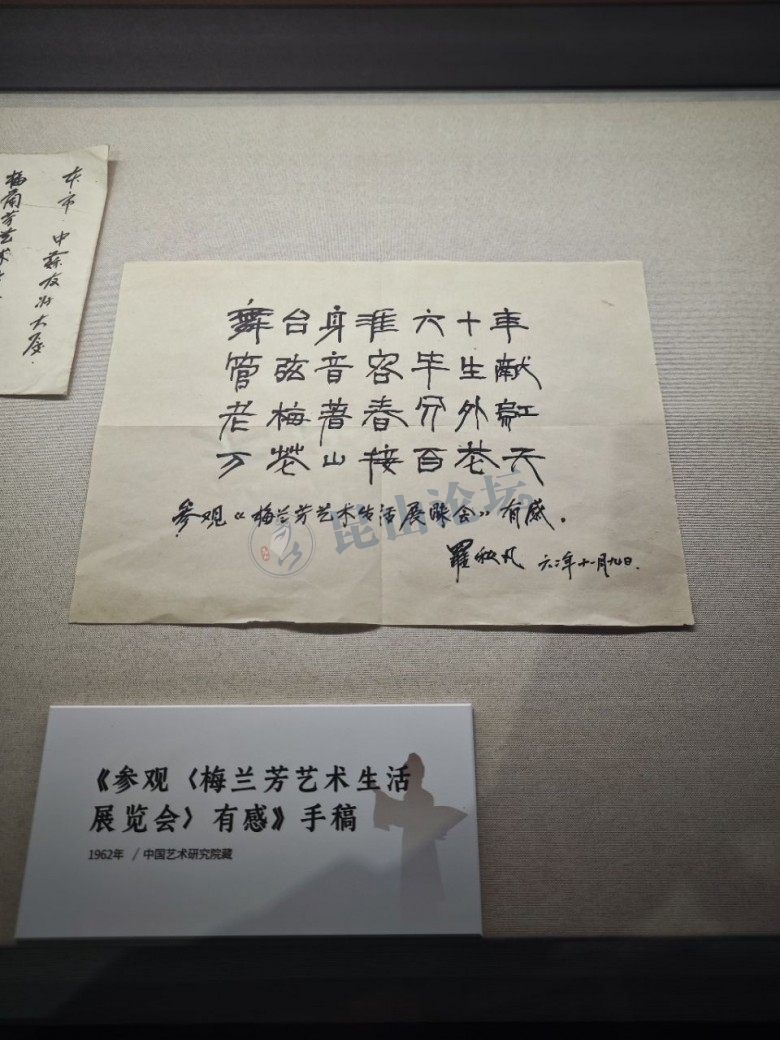 舞台身涯六十年
管弦音容毕生献
老梅著春分外红
万花山接百花天
参观《梅兰芳艺术生活展览会》有感。
罗秋凡 六二年十一月十九日.
东市 中苏友好大厦.
梅兰芳艺术
昆山论坛
《参观〈梅兰芳艺术生活
展览会〉有感》手稿
1962年 / 中国艺术研究院藏